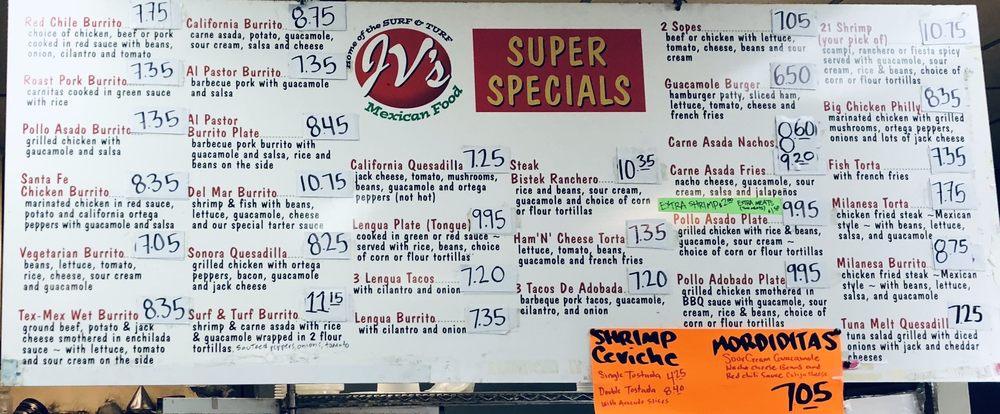 Red Chile Burrito 7.75
choice of chicken, beef or pork
cooked in red sauce with beans,
onion, cilantro and tomato
Roast Pork Burrito 7.35
carnitas cooked in green sauce
with rice
Pollo Asado Burrito 7.35
grilled chicken with
guacamole and salsa
Santa Fe
Chicken Burrito 8.35
marinated chicken in red sauce,
potato and california ortega
peppers with guacamole and salsa
Vegetarian Burrito 7.05
beans, lettuce, tomato,
rice, cheese, sour cream
and guacamole
Tex-Mex Wet Burrito 8.35
ground beef, potato & jack
cheese smothered in enchilada
sauce ~ with lettuce, tomato
and sour cream on the side
California Burrito 8.75
carne asada, potato, guacamole,
sour cream, salsa and cheese
Al Pastor Burrito 7.35
barbecue pork with guacamole
and salsa
Al Pastor
Burrito Plate 8.45
barbecue pork burrito with
guacamole and salsa, rice and
beans on the side
Del Mar Burrito 10.75
shrimp & fish with beans,
lettuce, guacamole, cheese
and our special tarter sauce
Sonora Quesadilla 8.25
grilled chicken with ortega
peppers, bacon, guacamole
and jack cheese
Surf & Turf Burrito 11.15
shrimp & carne asada with rice
& guacamole wrapped in 2 flour
tortillas. Sauteed peppers, onions, tomato
Home of the SURF & TURF
JV's
Mexican Food
SUPER
SPECIALS
California Quesadilla 7.25
jack cheese, tomato, mushrooms,
beans, guacamole and ortega
peppers (not hot)
Lengua Plate (Tongue) 9.95
cooked in green or red sauce ~
served with rice, beans, choice
of corn or flour tortillas
3 Lengua Tacos 7.20
with cilantro and onion
Lengua Burrito 7.35
with cilantro and onion
Steak
Bistek Ranchero 10.35
rice and beans, sour cream,
guacamole and choice of corn
or flour tortillas
Ham'N' Cheese Torta 7.35
lettuce, tomato, beans,
guacamole and french fries
3 Tacos De Adobada 7.20
barbeque pork tacos, guacamole,
cilantro, and onion
2 Sopes 7.05
beef or chicken with lettuce,
tomato, cheese, beans and sour
cream
Guacamole Burger 6.50
hamburger patty, sliced ham,
lettuce, tomato, cheese and
french fries
Carne Asada Nachos 8.60
Carne Asada Fries 9.20
nacho cheese, guacamole, sour
cream, salsa and jalapeños
EXTRA SHRIMP
EXTRA MEATS
Pollo Asado Plate 9.95
grilled chicken with rice & beans,
guacamole, sour cream ~
choice of corn or flour tortillas
Pollo Adobado Plate 9.95
grilled chicken smothered in
BBQ sauce with guacamole, sour
cream, rice & beans, choice of
corn or flour tortillas
21 Shrimp 10.75
(your pick of)
scampi, ranchero or fiesta spicy
served with guacamole, sour
cream, rice & beans, choice of
corn or flour tortillas
Big Chicken Philly 8.35
marinated chicken with grilled
mushrooms, ortega peppers,
onions and lots of jack cheese
Fish Torta 7.35
with french fries
Milanesa Torta 7.75
chicken fried steak ~Mexican
style ~ with beans, lettuce,
salsa, and guacamole
Milanesa Burrito 8.75
chicken fried steak ~Mexican
style ~ with beans, lettuce,
salsa, and guacamole
Tuna Melt Quesadill 7.25
tuna salad grilled with diced
onions with jack and cheddar
cheeses
SHRIMP
Ceviche
Single Tostada 4.25
Double Tostada 8.40
With Avacado Slices
MORDIDITAS
Sour Cream Guacamole
Nacho cheese Beans and
Red chili Sauce Cotija Cheese
7.05